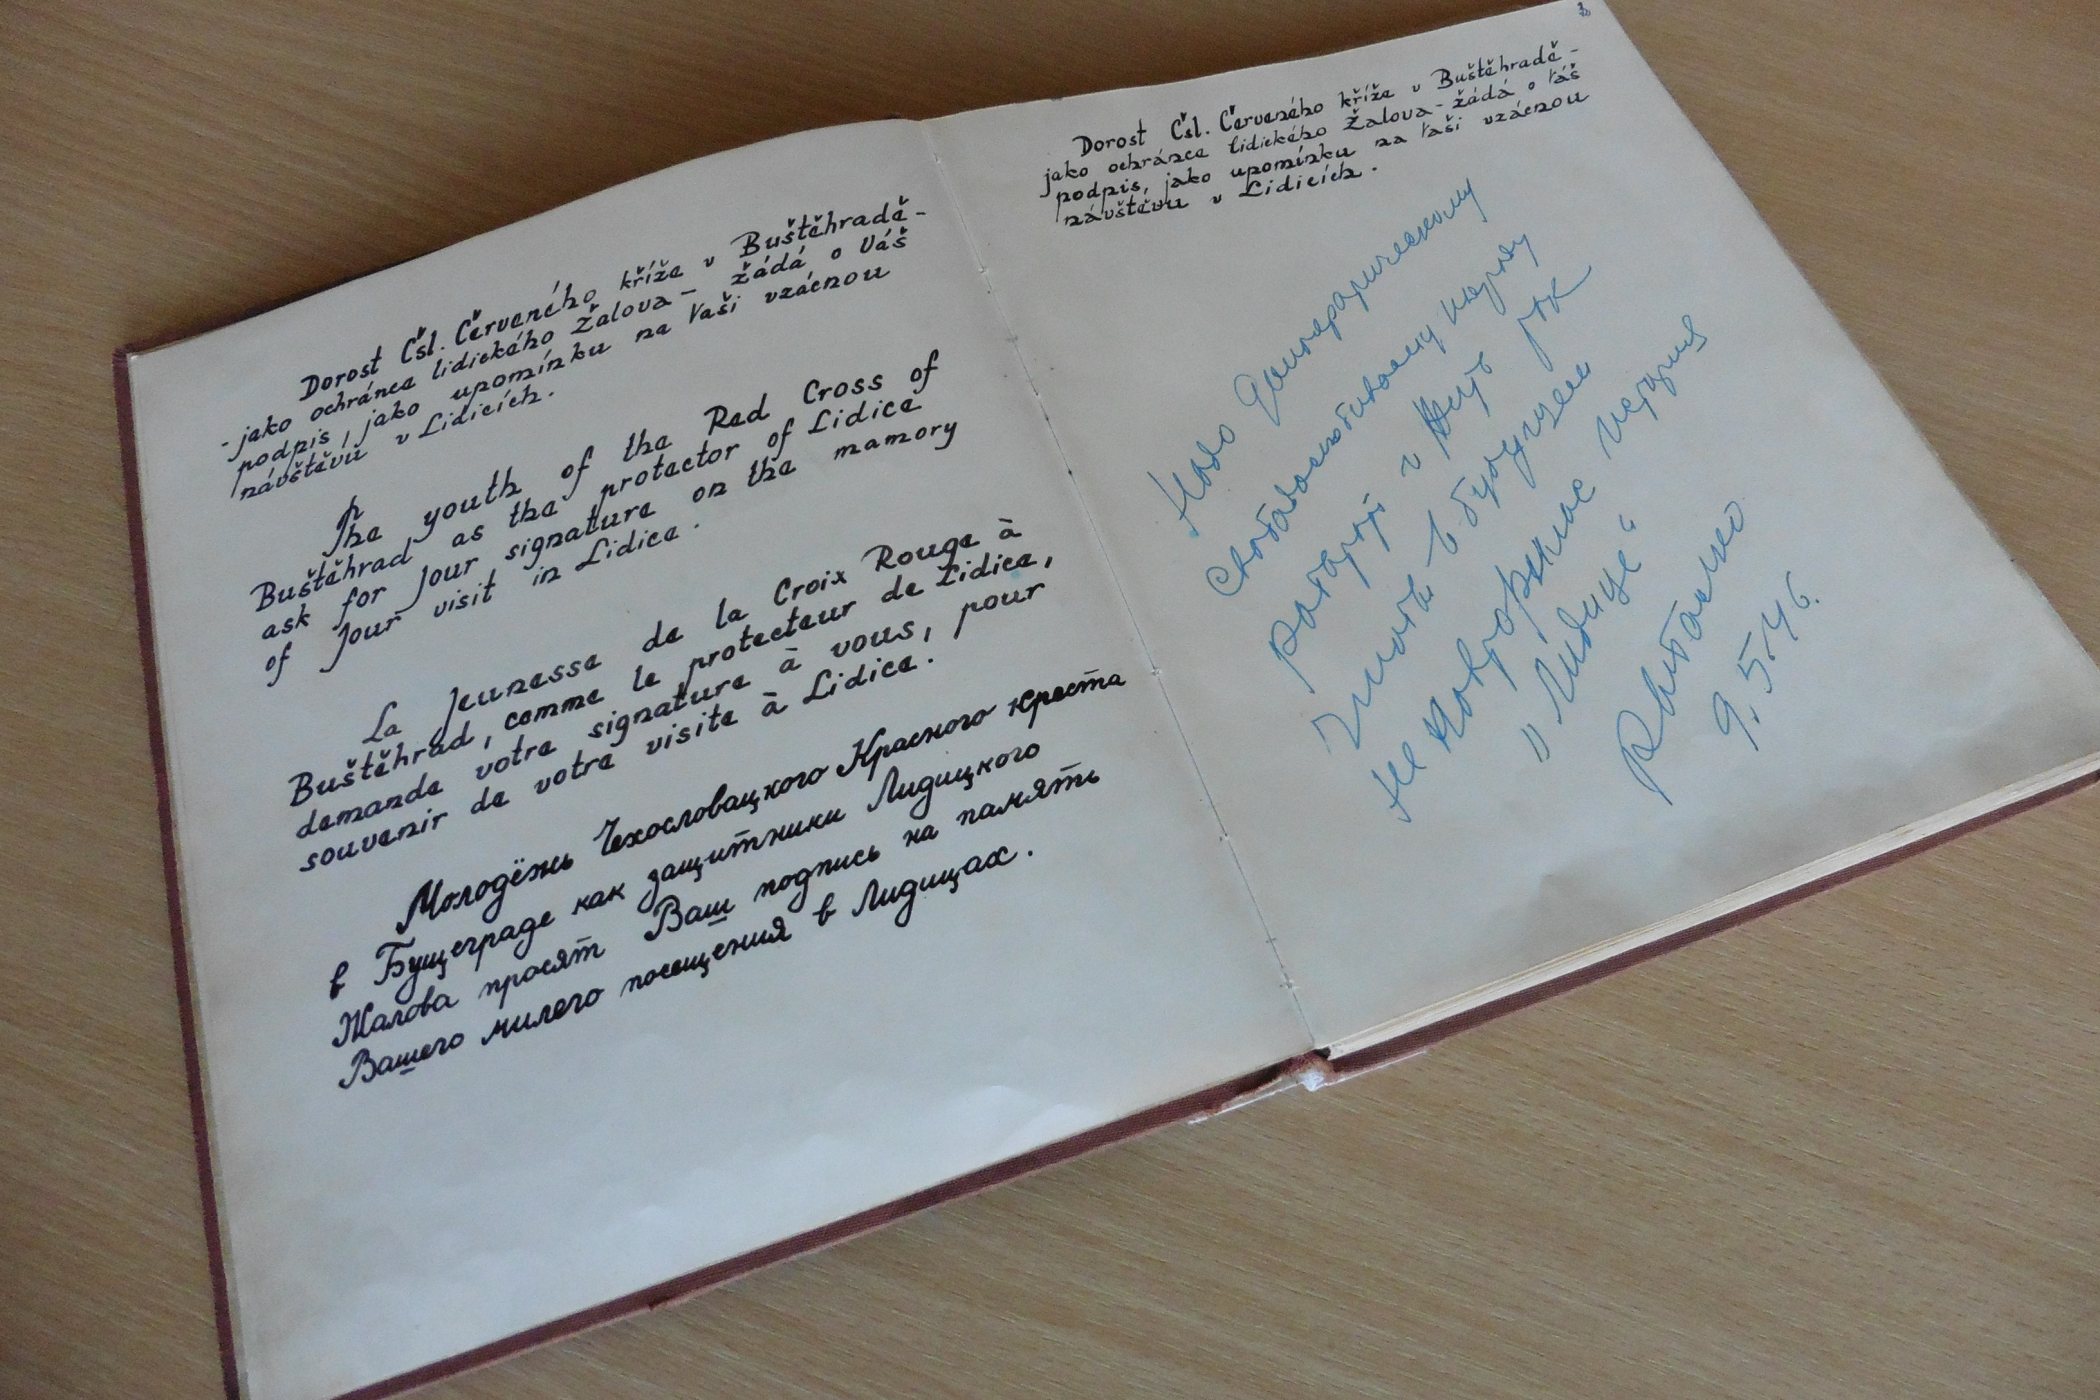 Dorost Čsl. Červeného kříže v Buštěhradě -
- jako ochránce lidického Žalova - žádá o Váš
podpis, jako upomínku na Vaši vzácnou
návštěvu v Lidicích.
The youth of the Red Cross of
Buštěhrad as the protector of Lidice
ask for jour signature on the mamory
of jour visit in Lidice.
La Jeunesse de la Croix Rouge à
Buštěhrad, comme le protecteur de Lidice,
demande votre signature à vous, pour
souvenir de votre visite à Lidice.
Молодёжь Чехословацкого Красного креста
в Бущеграде как защитники Лидицкого
Жалова просят Ваш подпись на память
Вашего милего посещения в Лидицах.
2
Dorost Čsl. Červeného kříže v Buštěhradě -
jako ochránce lidického Žalova - žádá o Váš
podpis, jako upomínku na Vaši vzácnou
návštěvu v Lidicích.
Надо Демократическому
свободолюбивому миру
работать и так
чтобы в будущем
не повторилас история
„Лидице"
9.5.46.